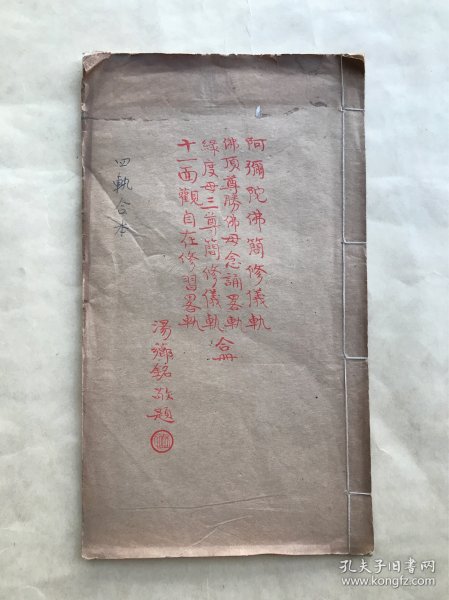 阿彌陀佛簡修儀軌
佛頂尊勝佛母念誦畧軌
綠度母三尊簡修儀軌
十一面觀自在修習畧軌
合冊
湯薌銘敬題
四軌合本
孔夫子旧书网
www.kongfz.com